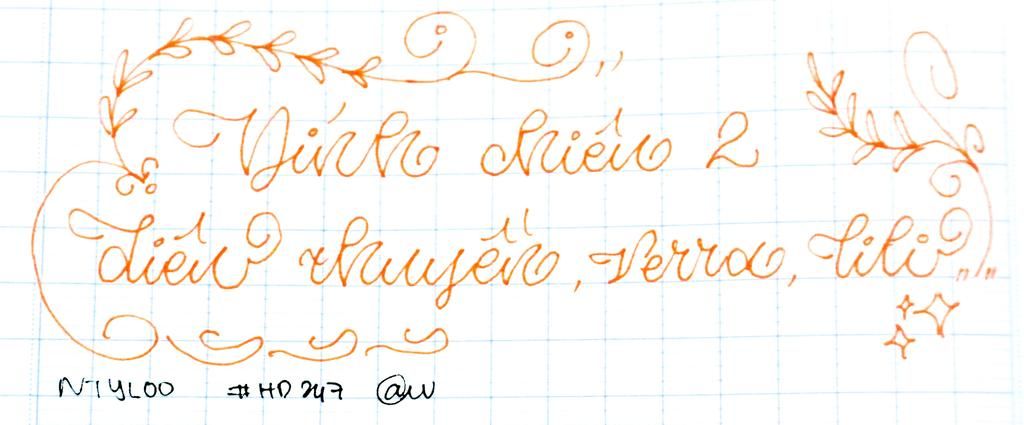 chiến 2
Liên thuyền, Verra, Lili"_"
NTYLOO #HD247 @w